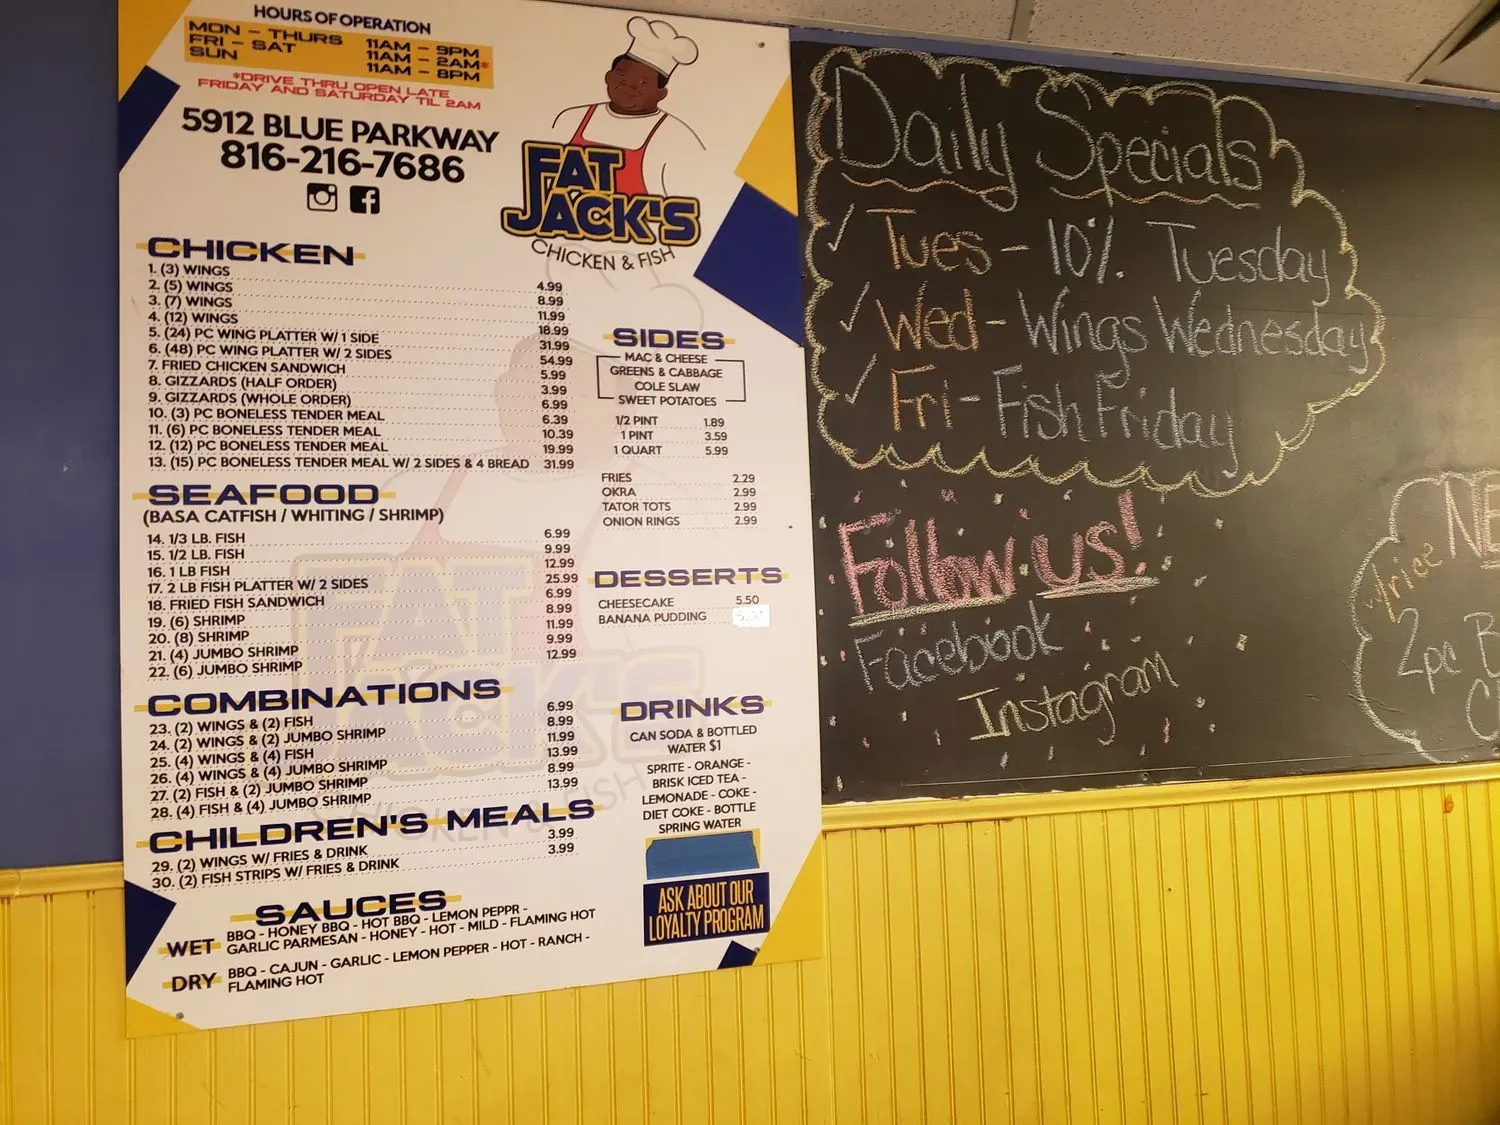 HOURS OF OPERATION
MON - THURS 11AM - 9PM
FRI - SAT 11AM - 2AM*
SUN 11AM - 8PM
*DRIVE THRU OPEN LATE
FRIDAY AND SATURDAY TIL 2AM
5912 BLUE PARKWAY
816-216-7686
FAT
JACK'S
CHICKEN & FISH
CHICKEN
1. (3) WINGS 4.99
2. (5) WINGS 8.99
3. (7) WINGS 11.99
4. (12) WINGS 18.99
5. (24) PC WING PLATTER W/ 1 SIDE 31.99
6. (48) PC WING PLATTER W/ 2 SIDES 54.99
7. FRIED CHICKEN SANDWICH 5.99
8. GIZZARDS (HALF ORDER) 3.99
9. GIZZARDS (WHOLE ORDER) 6.99
10. (3) PC BONELESS TENDER MEAL 6.39
11. (6) PC BONELESS TENDER MEAL 10.39
12. (12) PC BONELESS TENDER MEAL 19.99
13. (15) PC BONELESS TENDER MEAL W/ 2 SIDES & 4 BREAD 31.99
SEAFOOD
(BASA CATFISH / WHITING / SHRIMP)
14. 1/3 LB. FISH 6.99
15. 1/2 LB. FISH 9.99
16. 1 LB FISH 12.99
17. 2 LB FISH PLATTER W/ 2 SIDES 25.99
18. FRIED FISH SANDWICH 6.99
19. (6) SHRIMP 8.99
20. (8) SHRIMP 11.99
21. (4) JUMBO SHRIMP 9.99
22. (6) JUMBO SHRIMP 12.99
COMBINATIONS
23. (2) WINGS & (2) FISH 6.99
24. (2) WINGS & (2) JUMBO SHRIMP 8.99
25. (4) WINGS & (4) FISH 11.99
26. (4) WINGS & (4) JUMBO SHRIMP 13.99
27. (2) FISH & (2) JUMBO SHRIMP 8.99
28. (4) FISH & (4) JUMBO SHRIMP 13.99
CHILDREN'S MEALS
29. (2) WINGS W/ FRIES & DRINK 3.99
30. (2) FISH STRIPS W/ FRIES & DRINK 3.99
SAUCES
WET BBQ - HONEY BBQ - HOT BBQ - LEMON PEPPR -
GARLIC PARMESAN - HONEY - HOT - MILD - FLAMING HOT
DRY BBQ - CAJUN - GARLIC - LEMON PEPPER - HOT - RANCH -
FLAMING HOT
SIDES
MAC & CHEESE
GREENS & CABBAGE
COLE SLAW
SWEET POTATOES
1/2 PINT 1.89
1 PINT 3.59
1 QUART 5.99
FRIES 2.29
OKRA 2.99
TATOR TOTS 2.99
ONION RINGS 2.99
DESSERTS
CHEESECAKE 5.50
BANANA PUDDING
DRINKS
CAN SODA & BOTTLED
WATER $1
SPRITE - ORANGE -
BRISK ICED TEA -
LEMONADE - COKE -
DIET COKE - BOTTLE
SPRING WATER
ASK ABOUT OUR
LOYALTY PROGRAM
Daily Specials
Tues - 10% Tuesday
Wed - Wings Wednesday
Fri - Fish Friday
Follow us!
Facebook
Instagram
NE
2pc B
C